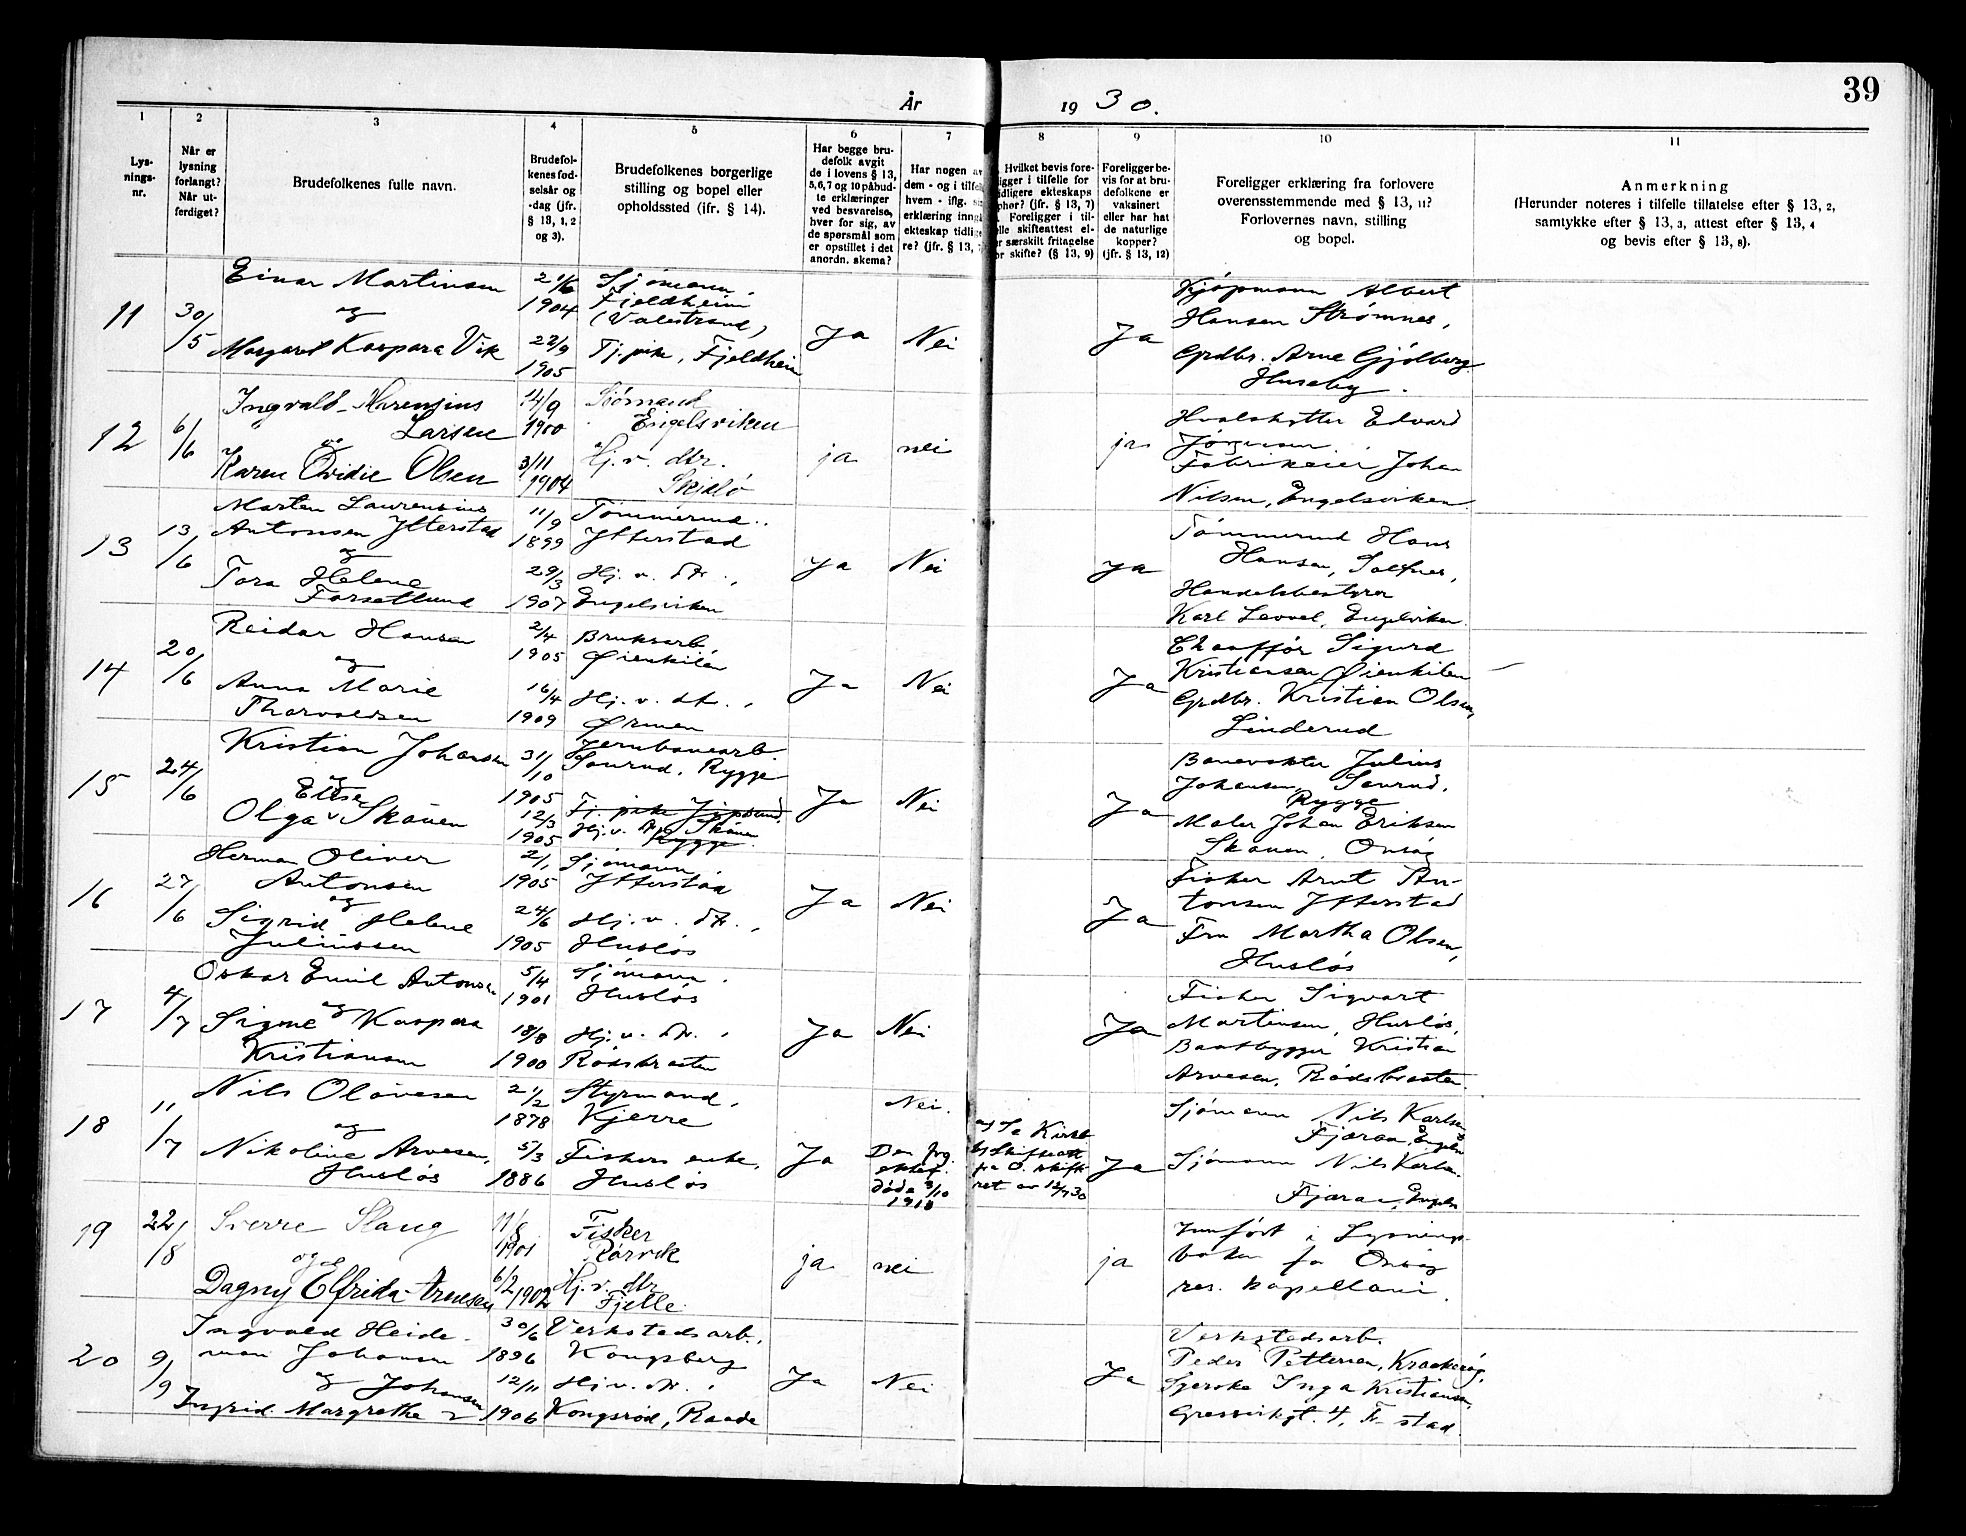 39
År 1930.
1 2 3 4 5 6 7 8 9 10 11
Lys-
nings-
nr.
Når er
lysning
forlangt?
Når ut-
ferdiget?
Brudefolkenes fulle navn.
Brudefol-
kenes fød-
selsår og
-dag (jfr.
§ 13, 1, 2
og 3).
Brudefolkenes borgerlige
stilling og bopel eller
opholdssted (ifr. § 14).
Har begge bru-
defolk avgit
de i lovens § 13,
5,6,7 og 10 påbud-
te erklæringer
ved besvarelse,
hver for sig, av
de spørsmål som
er opstillet i det
anordn. skema?
Har nogen av
dem - og i tilfel
hvem - iflg. si
erklæring inng
ekteskap tidlig
re? (jfr. § 13,
Hvilket bevis fore-
igger i tilfelle for
idligere ekteskaps
phør? (jfr. § 13, 7)
Foreligger i til-
elle skifteattest el-
r særskilt fritagelse
or skifte? (§ 13, 9)
Foreligger be-
vis for at bru-
defolkene er
vaksinert
eller har hat
de naturlige
kopper?
(jfr. § 13, 12)
Foreligger erklæring fra forlovere
overensstemmende med § 13, 11?
Forlovernes navn, stilling
og bopel.
Anmerkning
(Herunder noteres i tilfelle tillatelse efter § 13, 2,
samtykke efter § 13, 3, attest efter § 13, 4
og bevis efter § 13, 8).
11
30/5
Einar Martinsen
og
Margaret Kaspara Vik
21/6
1904
22/9
1905
Sjømann,
Fjeldheim
(Valestrand)
Tj.pike, Fjeldheim
Ja
Nei
Ja
Kjøpmann Albert
Hansen Strømnes,
Grdbr. Arne Gjølberg
Huseby.
12
6/6
Ingvald Marensius
Larsen
og
Karen Ovidie Olsen
14/9
1900
3/11
1904
Sjømand
Engelsviken
Hj. v. dtr.
Skjelø
ja
nei
ja
Hvalskytter Edvard
Jørgensen
Fabrikeier Johan
Nilsen, Engelsviken
13
13/6
Marten Laurensius
Antonsen Ytterstad
og
Tora Helene
Forsetlund
11/9
1899
29/3
1907
Tømmermd.
Ytterstad
Hj. v. dtr.,
Engelsviken
Ja
Nei
Ja
Tømmermd Hans
Hansen,
Handelsbestyrer
Karl Levvel, Engelsviken.
14
20/6
Reidar Hansen
og
Anna Marie
Thorvaldsen
2/4
1905
16/4
1909
Bruksarb.
Øienkilen
Hj. v. dtr.,
Ørmen
Ja
Nei
Ja
Chauffør Sigurd
Kristiansen Øienkilen
Grdbr. Kristian Olsen,
Linderud
15
24/6
Kristian Johansen
og
Else
Olga Skåuen
31/10
1905
12/3
1905
Jernbanearb.
Saurud, Rygge
Tj. pike
Hj. v. dtr. Skåuen
Rygge
Ja
Nei
Ja
Banevokter Julius
Johansen, Saurud,
Rygge
Maler Johan Eriksen
Skauen, Onsøy
16
27/6
Herman Oliver
Antonsen
og
Sigrid Helene
Juliussen
2/1
1905
24/6
1905
Sjømann,
Ytterstad
Hj. v. dtr.,
Husløs
Ja
Nei
Ja
Fisker Arnt An-
tonsen Ytterstad
Fru Martha Olsen,
Husløs
17
4/7
Oskar Emil Antonsen
og
Signe Kaspara
Kristiansen
5/4
1901
18/8
1900
Sjømann,
Husløs
Hj. v. dtr.,
Rødsbraaten
Ja
Nei
Ja
Fisker Sigvart
Martinsen, Husløs,
Baatbygger Kristian
Arvesen, Rødsbraaten.
18
11/7
Nils Olavesen
og
Nikoline Arvesen,
Husløs
21/2
1878
5/3
1886
Styrmand,
Kjerre
Fiskers enke,
Husløs
Ja
Nei.
Den frg.
ektef.
døde 3/10
1918
Skifteatt
fra O. skifte
ret av 12/7 30
Ja
Sjømann Nils Karlsen
Fjæran, Engelsv
Sjømann Nils Karlsen
Fjæran, Engelsv
19
22/8
Sverre Slang
og
Dagny Elfrida Arnesen
11/8
1901
6/2 1902
Fisker
Rørvik
Hj. v. dtr
Fjelle.
ja
nei
ja
Innført i Lysnings-
boken for Onsøy
res. kapellani.
20
9/9
Ingvald Heide-
man Johansen
og Johansen
Ingrid Margrethe
30/6
1896
12/11
1906
Verkstedsarb.,
Kongsberg
Hj. v. dtr.,
Kongsrød, Raade
Ja
Nei
Ja
Verkstedsarb.
Peder Pettersen, Kraakerøy,
Syerske Inga Kristiansen,
Gressvikgt. 4, F-stad.